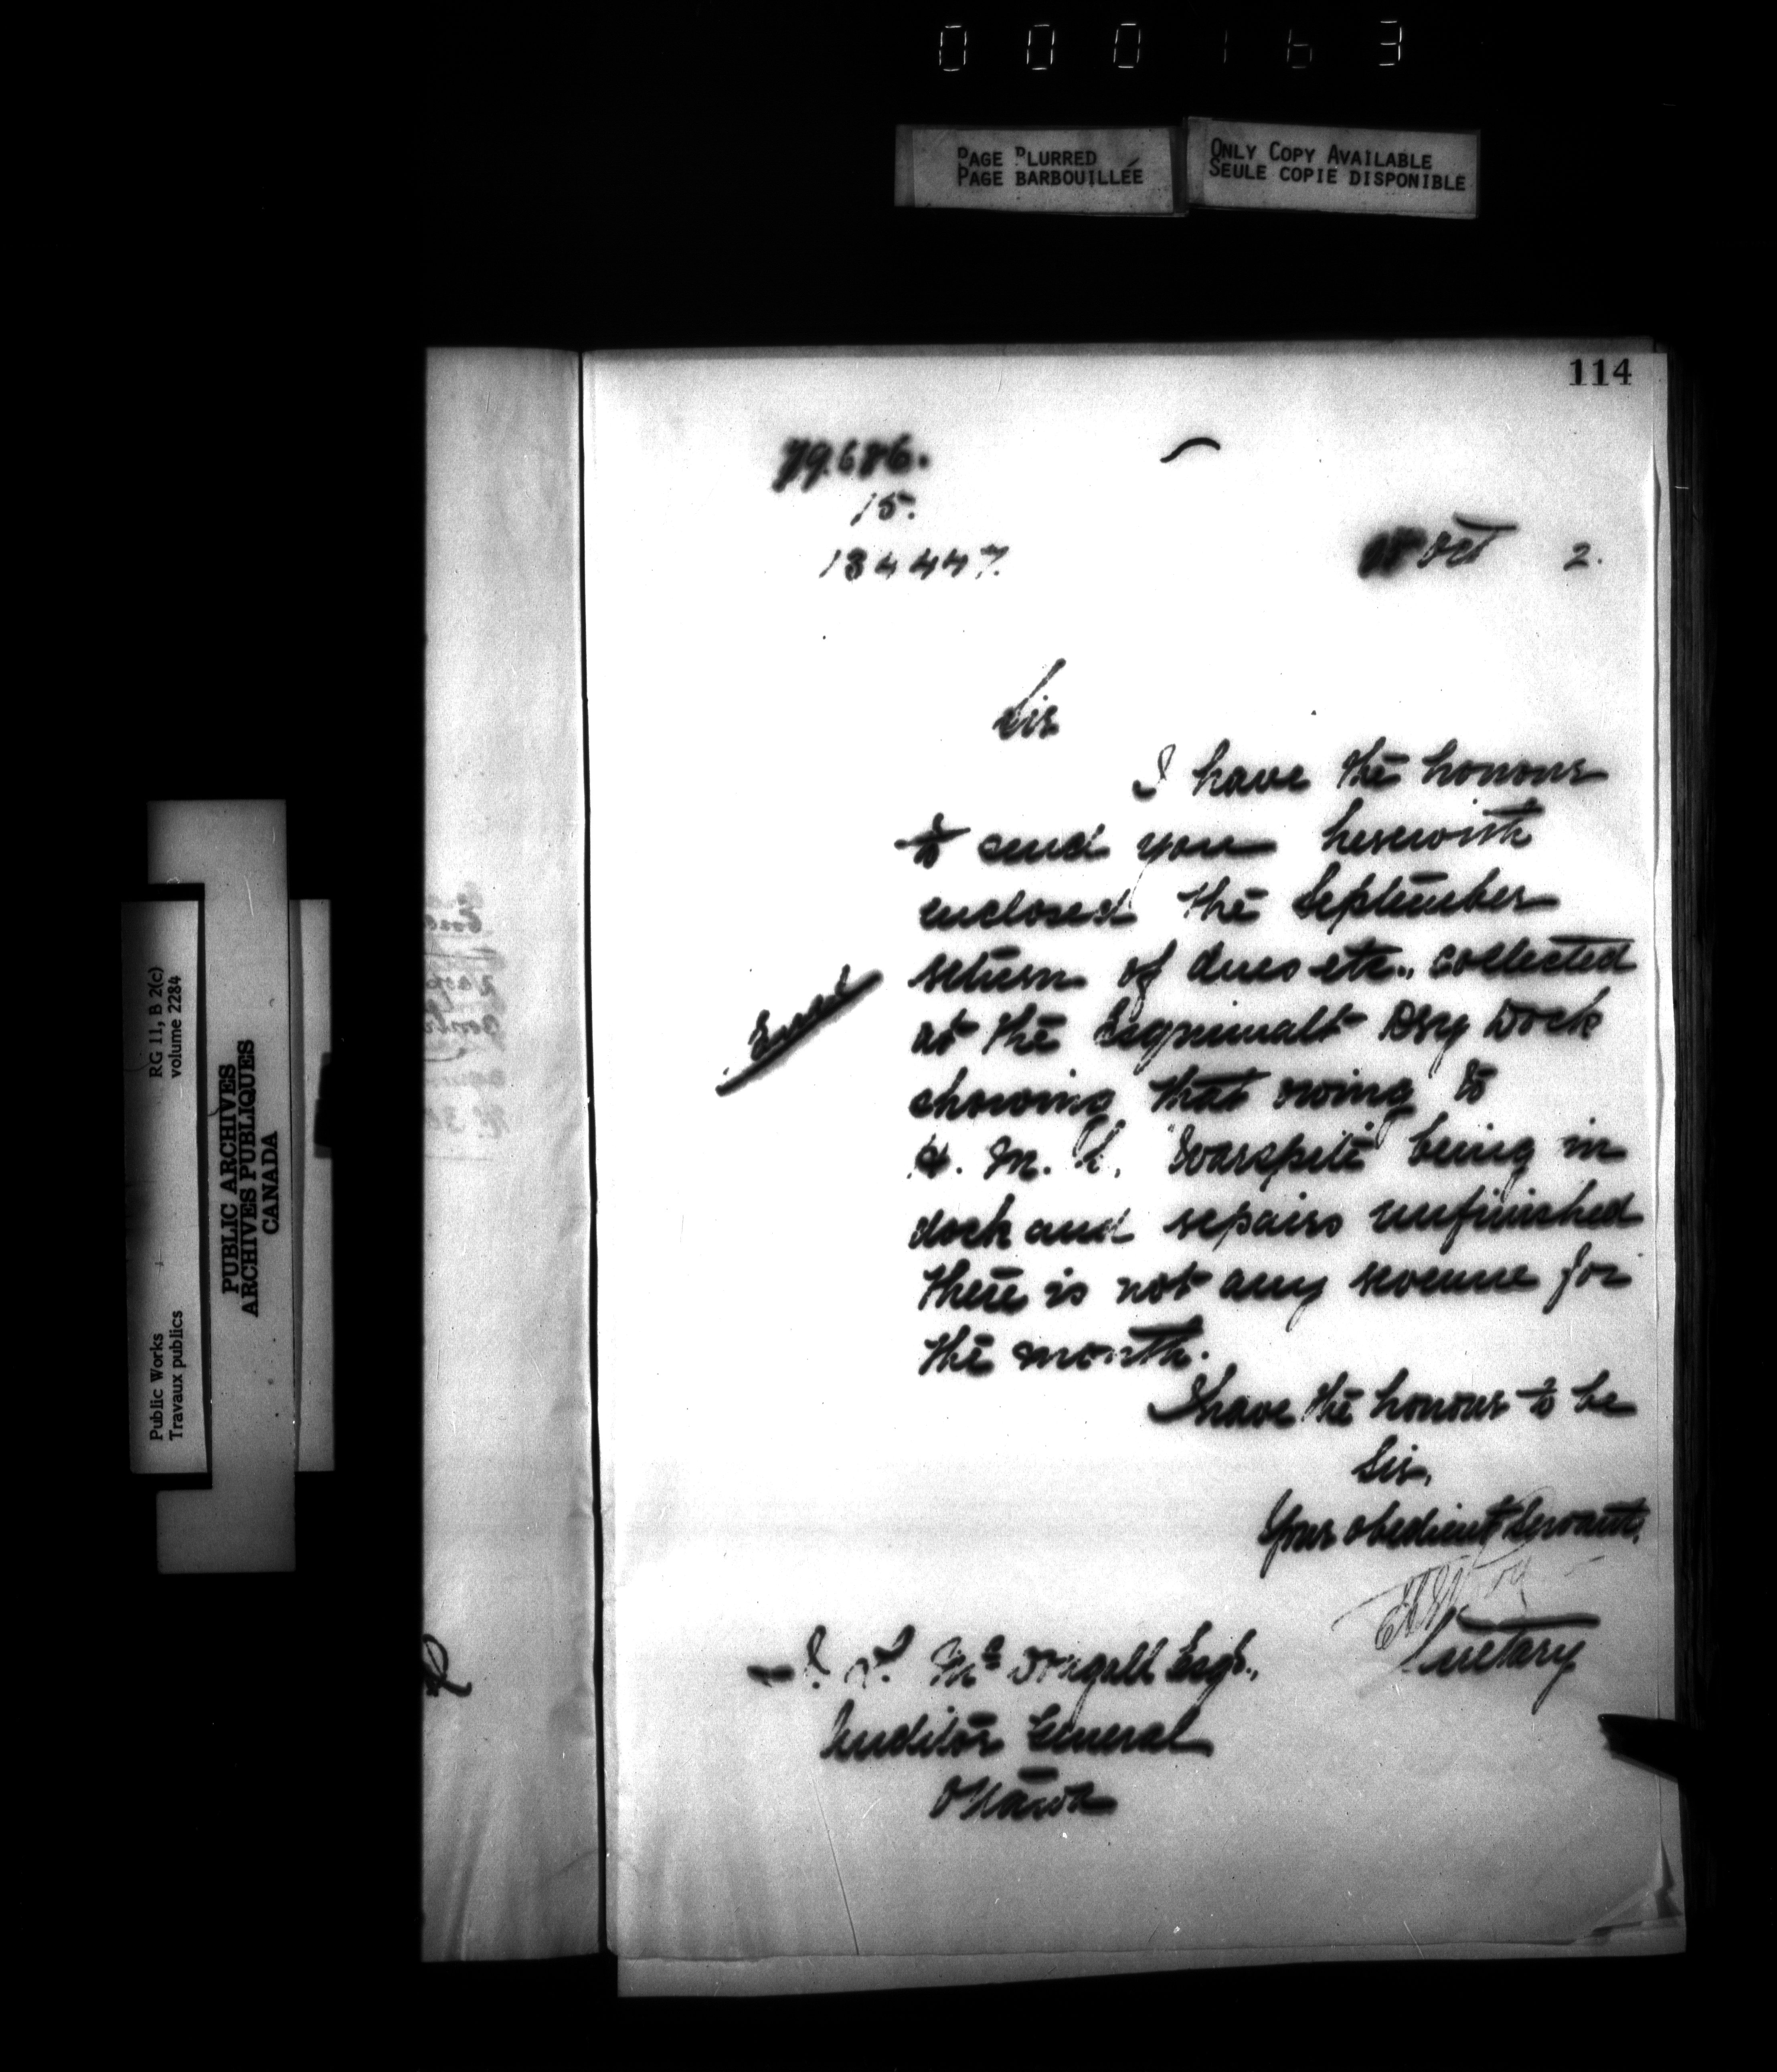 000163
PAGE BLURRED
PAGE BARBOUILLÉE
ONLY COPY AVAILABLE
SEULE COPIE DISPONIBLE
114
79686.
15.
134447.
Oct 2.
Sir
I have the honour
to send you herewith
enclosed the September
return of dues etc., collected
at the Esquimalt Dry Dock
showing that owing to
H. M. S. "Warspite" being in
dock and repairs unfinished
there is not any revenue for
the month.
I have the honour to be
Sir,
Your obedient Servant,
Secretary
J. L. McDougall Esqr.,
Auditor General
Ottawa
RG 11, B 2(c)
volume 2284
Public Works
Travaux publics
PUBLIC ARCHIVES
ARCHIVES PUBLIQUES
CANADA